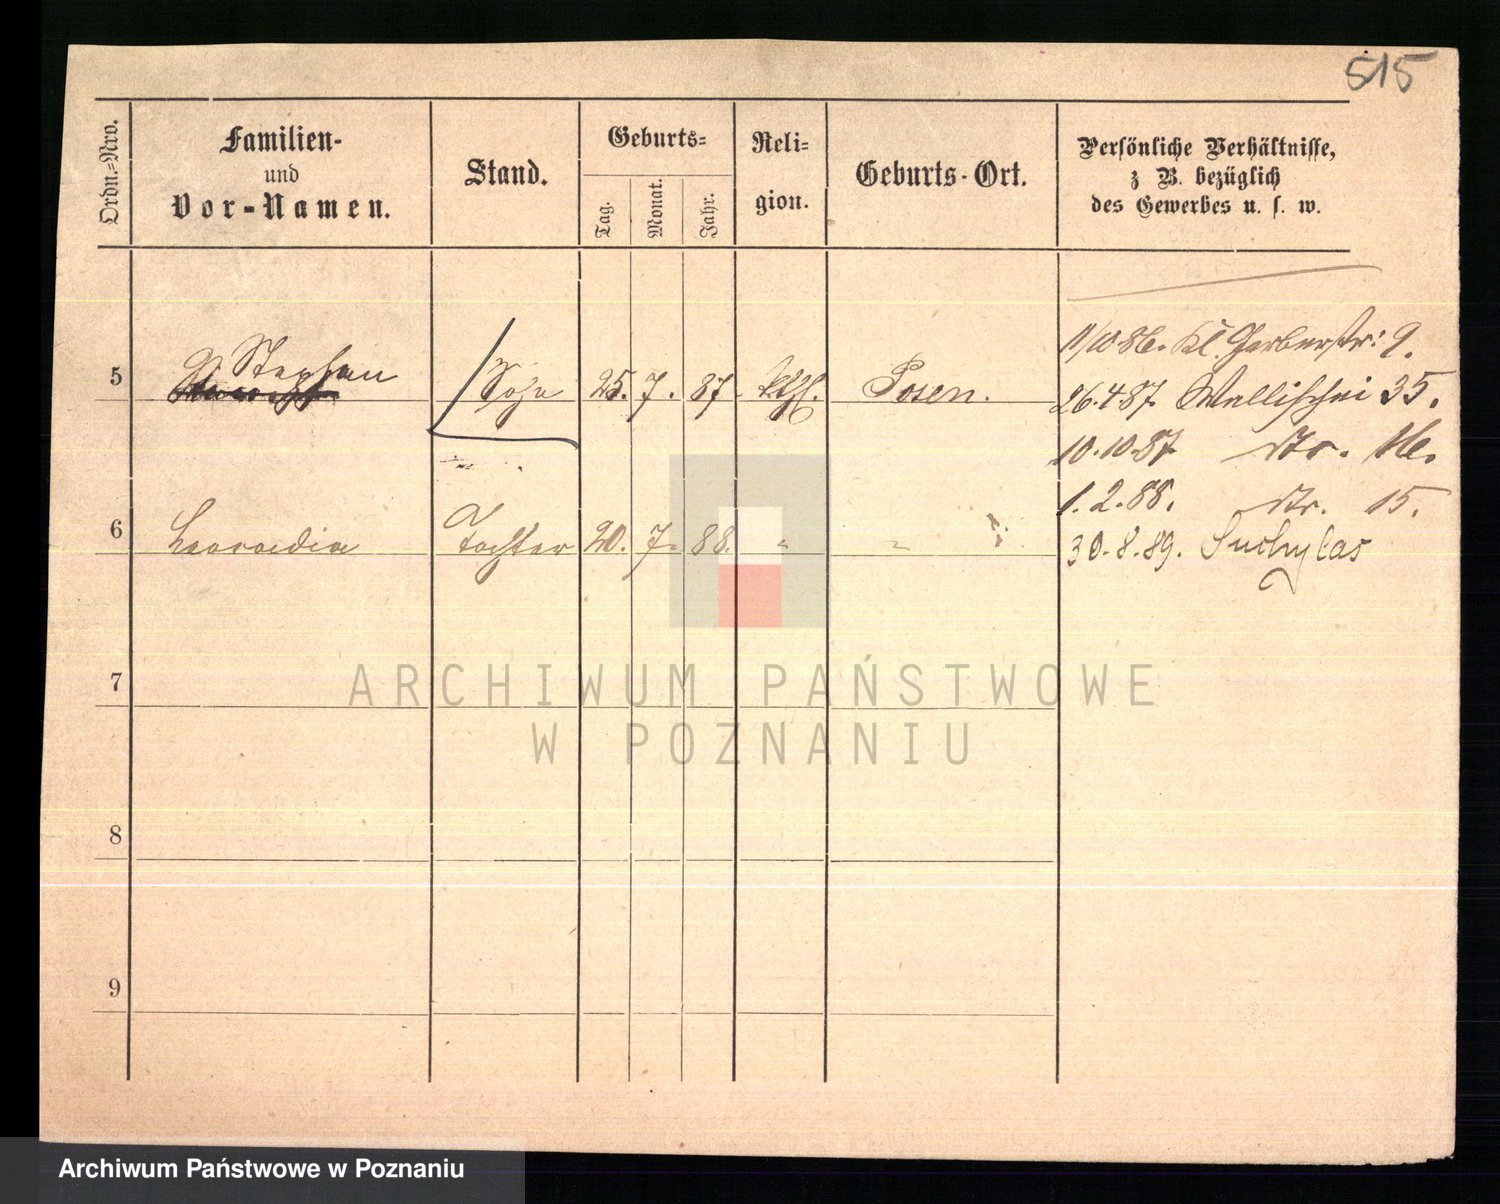 515
Ordn.-Nro.
Familien-
und
Vor-Namen.
Stand.
Geburts-
Tag.
Monat.
Jahr.
Reli-
gion.
Geburts-Ort.
Persönliche Verhältnisse,
z B. bezüglich
des Gewerbes u. s. w.
11/10.86. Kl. Gerberstr: 9.
5 Stephan Sohn 25. 7. 87. kth. Posen.
26.4.87. Wallischei 35.
10.10.87. dto. 16.
1.2.88. dto. 15.
6 Leocadia Tochter 20. 7. 88. " "
30.8.89. Suchylas
7
8
9
ARCHIWUM PAŃSTWOWE
W POZNANIU
Archiwum Państwowe w Poznaniu